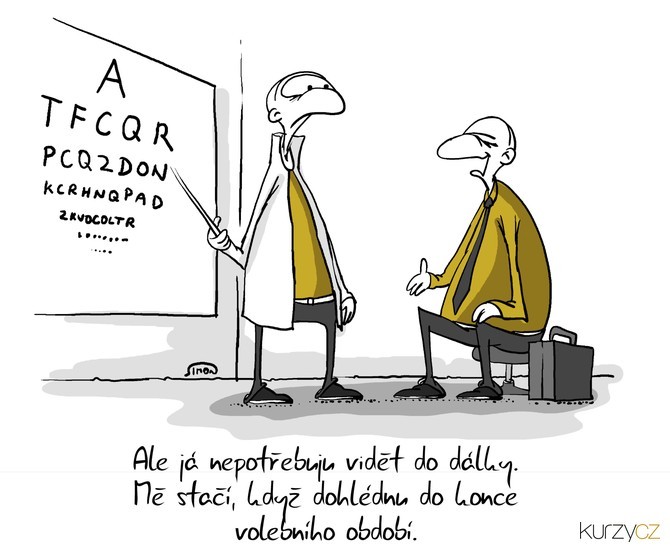 A
TFCQR
PCQZDON
KCRHNQPAD
ZKVDCOLTR
SIMON
Ale já nepotřebuju vidět do dálky.
Mě stačí, když dohlédnu do konce
volebního období.
kurzycz